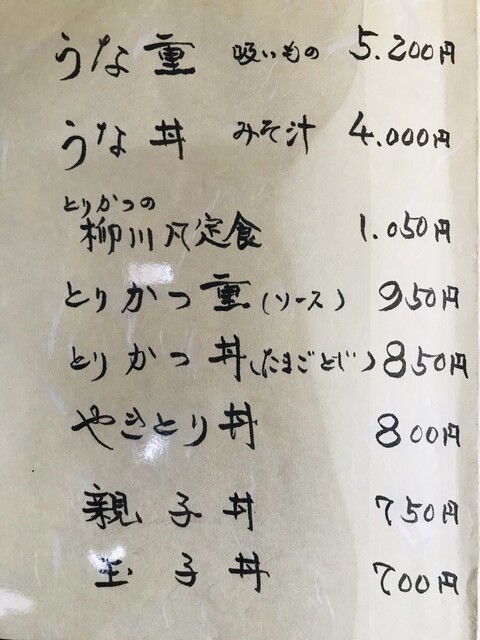 うな重 吸いもの 5.200円
うな丼 みそ汁 4.000円
とりかつの
柳川凡定食 1.050円
とりかつ重(ソース) 950円
とりかつ丼(たまごとじ) 850円
やきとり丼 800円
親子丼 750円
玉子丼 700円